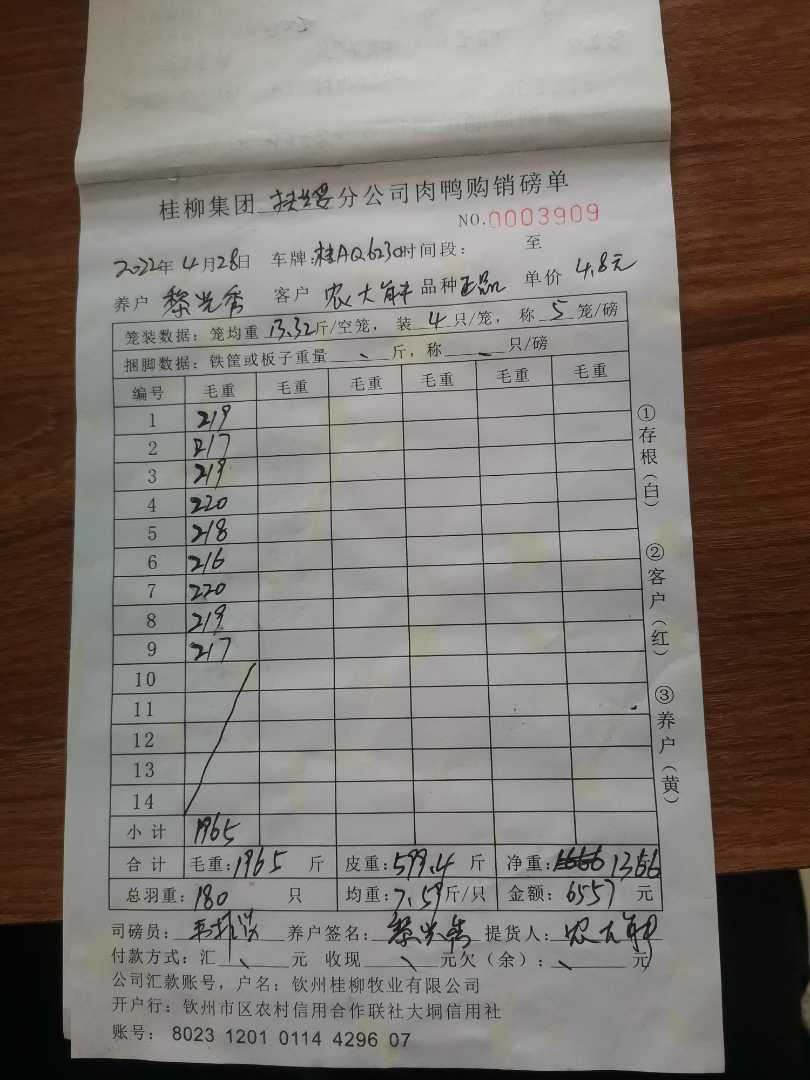 桂柳集团 扶绥 分公司肉鸭购销磅单
NO.0003909
2022年4月28日 车牌:桂AQ6230时间段: 至
养户 黎兰秀 客户 农大 品种 正品 单价 4.8元
笼装数据:笼均重 13.32斤/空笼, 装 4 只/笼, 称 5 笼/磅
捆脚数据:铁筐或板子重量 、 斤, 称 、 只/磅
编号 毛重 毛重 毛重 毛重 毛重 毛重
1 219
2 217
3 219
4 220
5 218
6 216
7 220
8 219
9 217
10
11
12
13
14
小计 1965
合计 毛重:1965 斤 皮重:599.4 斤 净重: 1366
总羽重: 180 只 均重:7.59斤/只 金额: 6557 元
司磅员: 养户签名: 黎兰秀 提货人: 农大
付款方式:汇 、 元 收现 、 元欠(余): 、 元
公司汇款账号,户名:钦州桂柳牧业有限公司
开户行:钦州市区农村信用合作联社大垌信用社
账号: 8023 1201 0114 4296 07
①存根(白)
②客户(红)
③养户(黄)